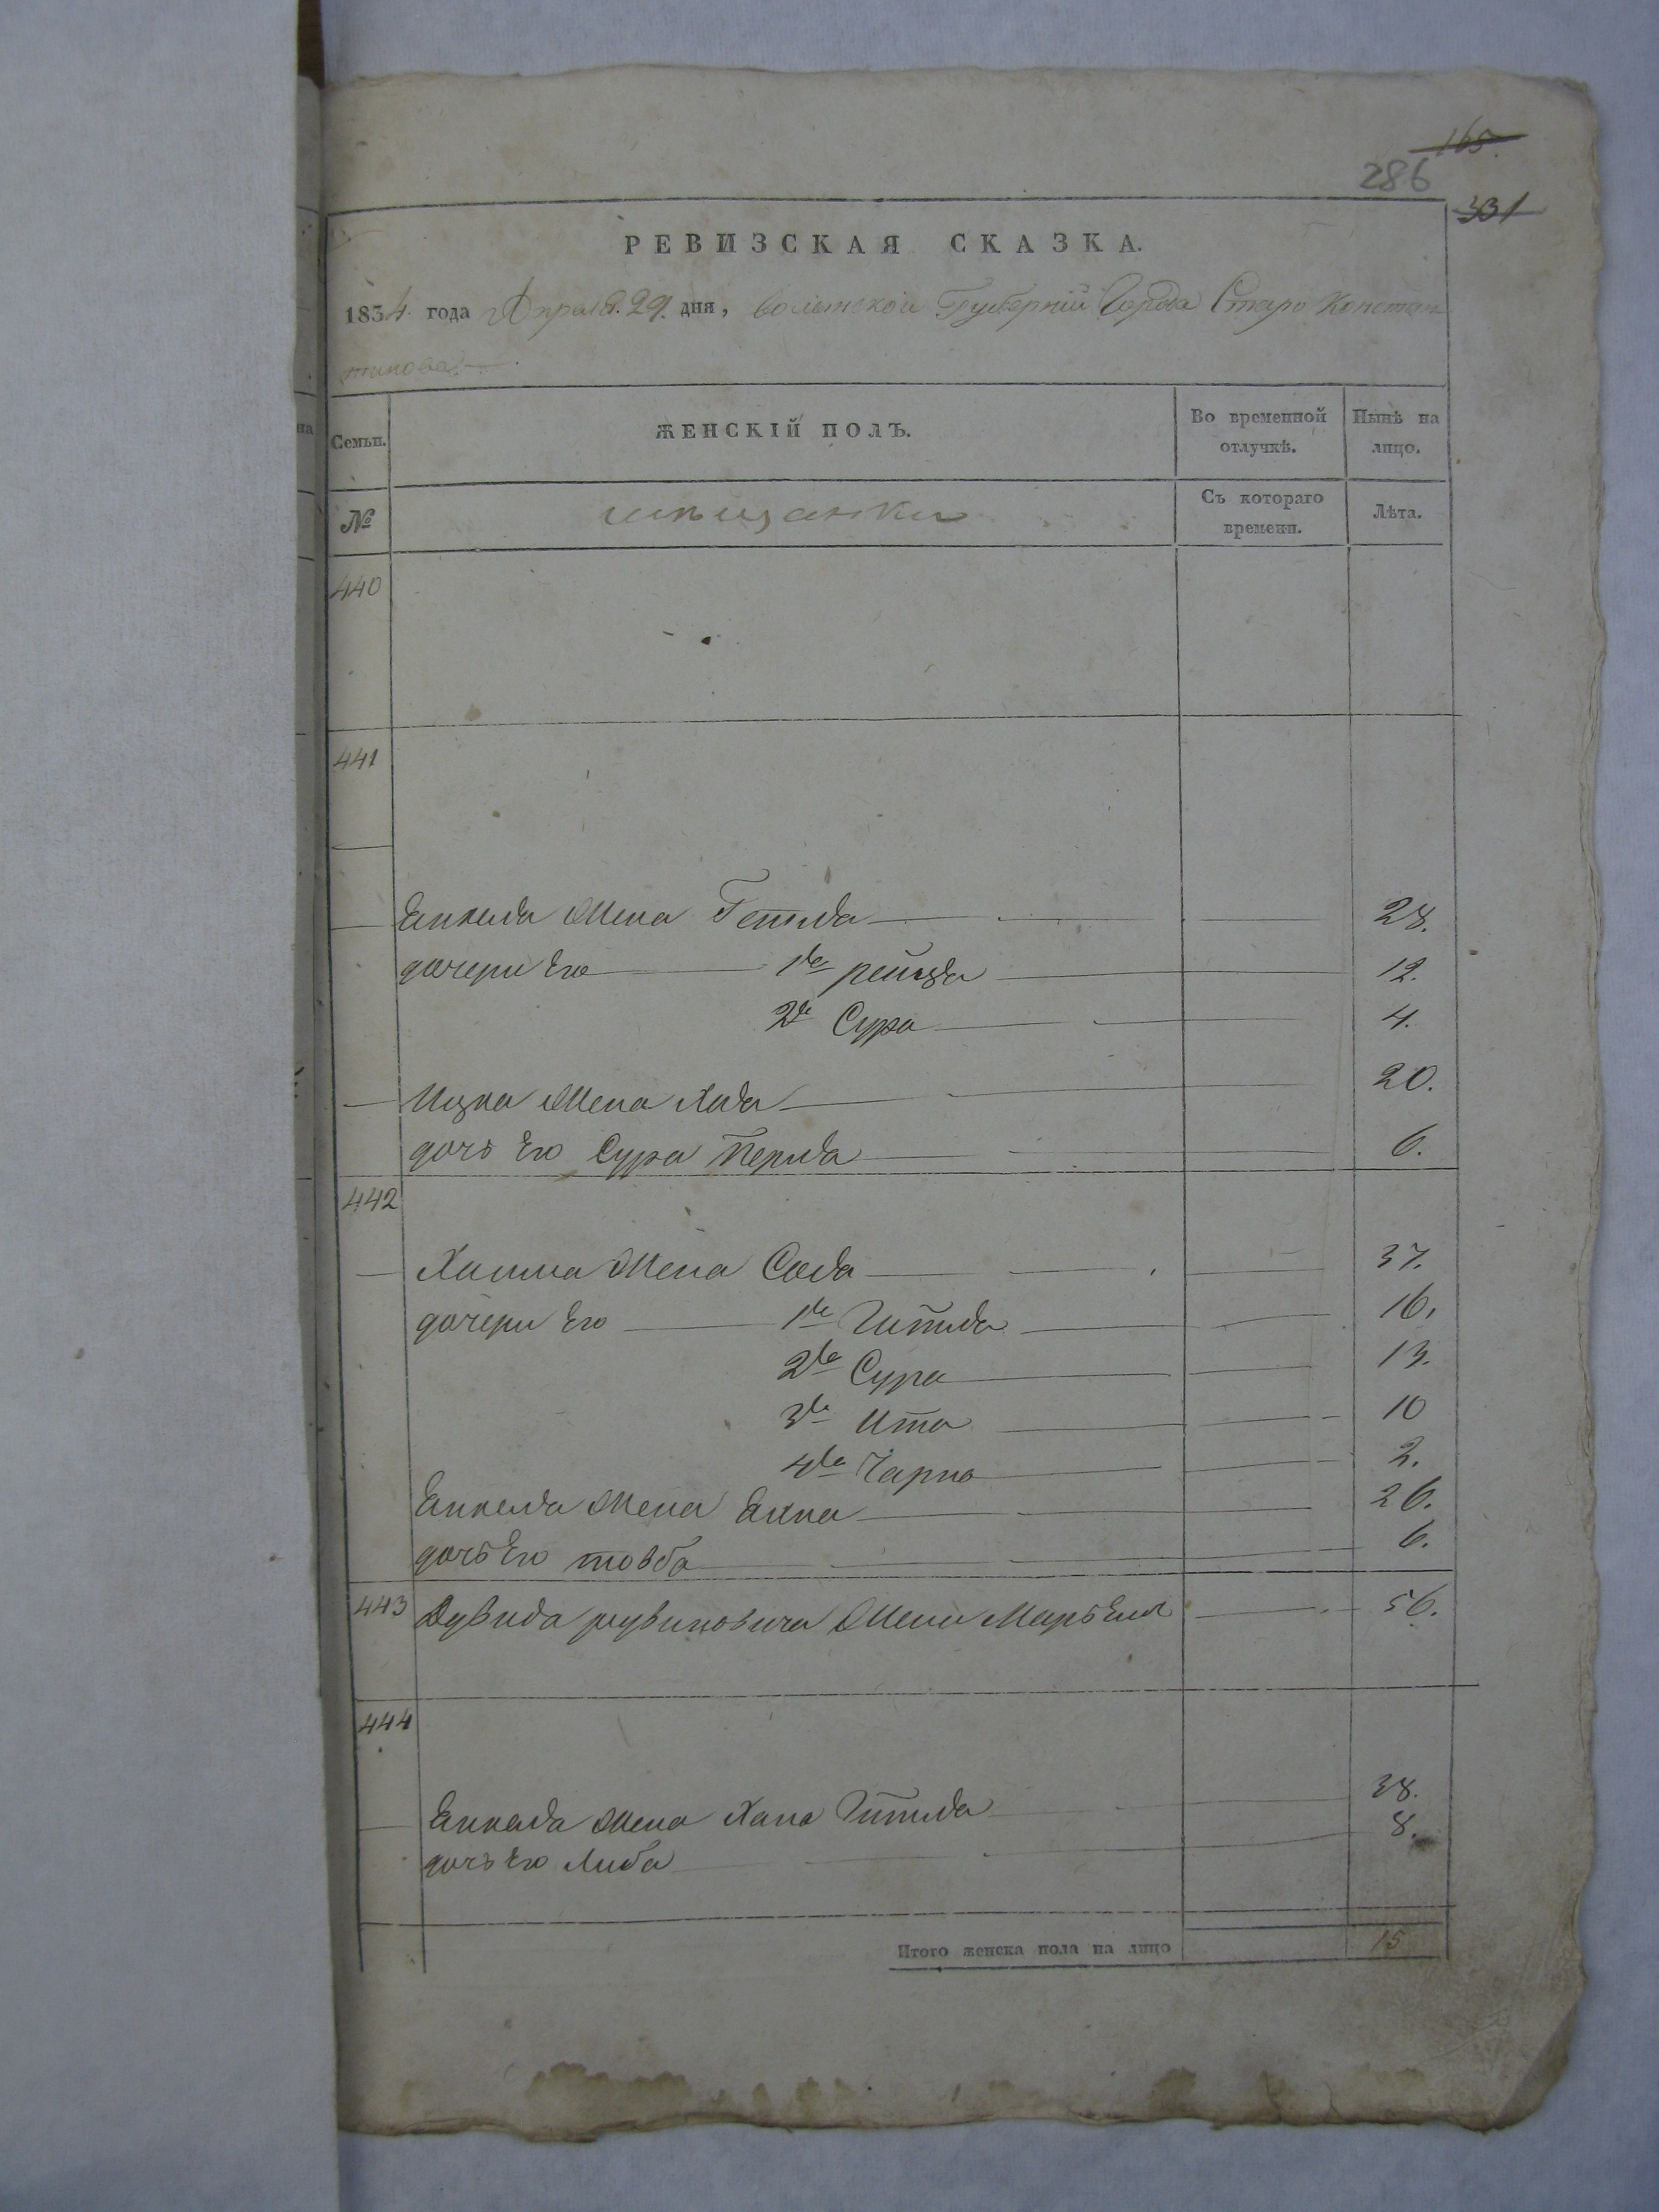 165.
286
331
РЕВИЗСКАЯ СКАЗКА.
1834 года Апреля 29 дня, Волынской Губерніи Города Старо Констан
тинова
Семьи. ЖЕНСКІЙ ПОЛЪ. Во временной отлучкѣ. Нынѣ на лицо.
№ мѣщанки Съ котораго времени. Лѣта.
440
441
Янкеля Жена Гитля 28.
дочери Его 1я рейзя 12.
2я Сура 4.
Ицка Жена 20.
дочь Его Сура Перля 6.
442
Хаима Жена Сося 37.
дочери Его 1я Гитля 16.
2я Сура 13.
3я Ита 10
4я Чарна 2.
Янкеля Жена 26.
дочь Его товба 6.
443 Дувида рувиновича Жена Марьем 56.
444
Янкеля Жена Хана Гитля 38.
дочь Его Либа 8.
Итого женска пола на лицо 15